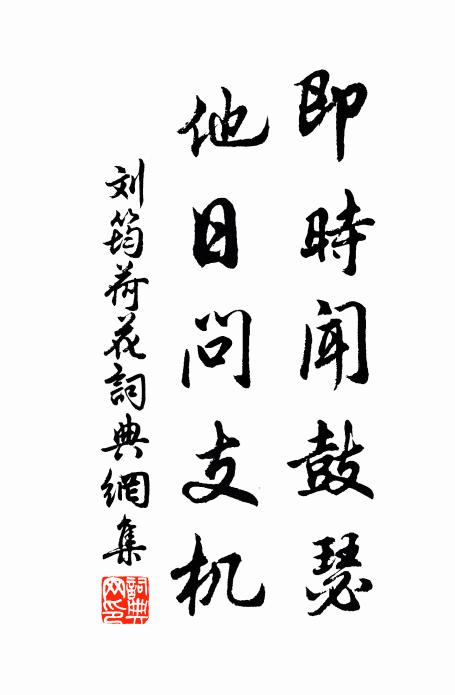 即時聞鼓瑟
他日问支机
刘筠荷花詞典網集
詞典网印